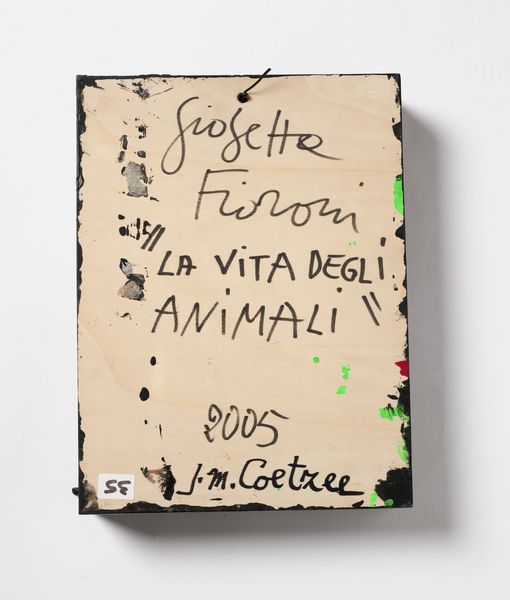 Giosetta
Fioroni
"LA VITA DEGLI
ANIMALI"
2005
J.M. Coetzee